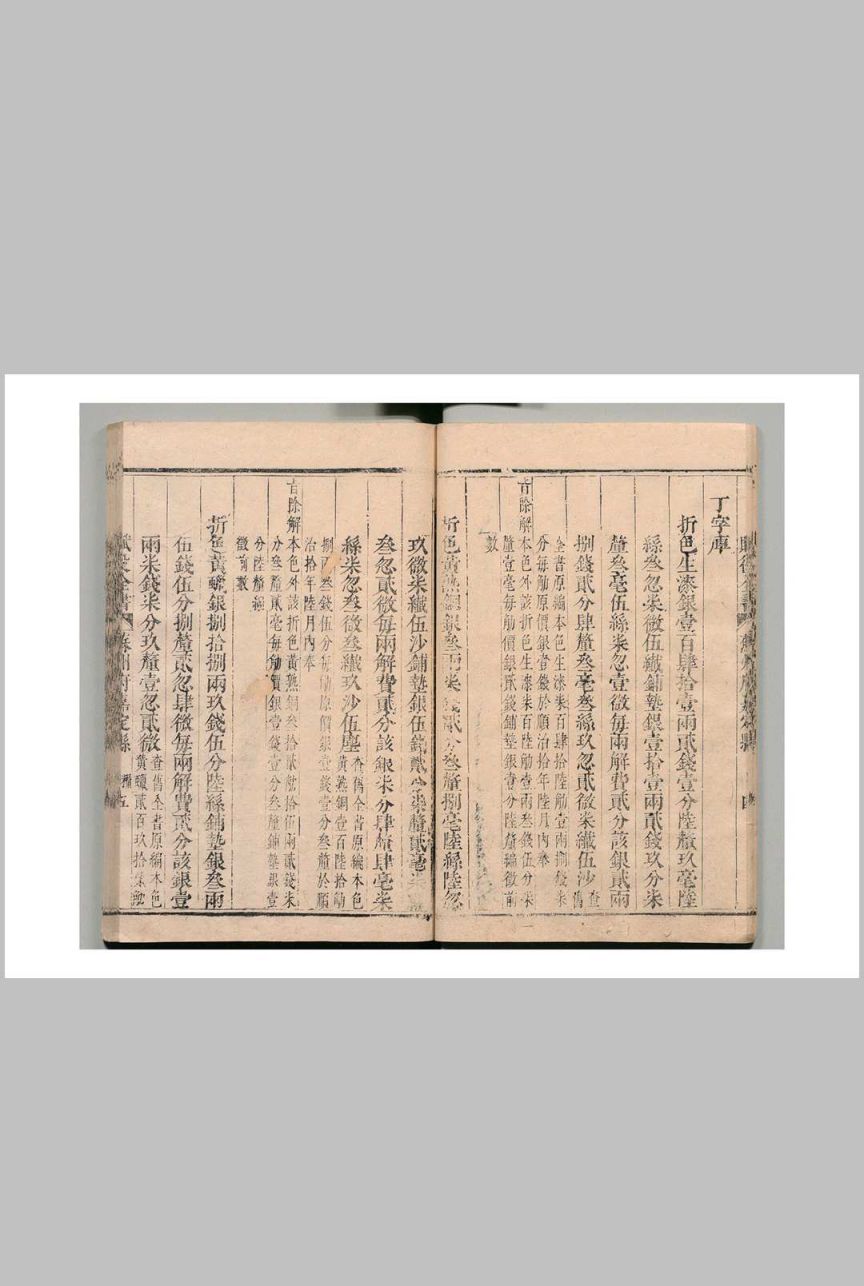 丁字庫
折色生漆銀壹百肆拾壹兩貳錢壹分陸釐玖毫陸
絲叁忽柒微伍纖鋪墊銀壹拾壹兩貳錢玖分柒
釐叁毫伍絲柒忽壹微每兩解費貳分該銀貳兩
捌錢貳分肆釐叁毫叁絲玖忽貳微柒纖伍沙查舊
全書原編本色生漆柒百肆拾陸觔壹兩捌錢柒
分每觔原價銀壹錢於順治拾年陸月內奉
旨除解本色外該折色生漆柒百陸觔壹兩叁錢伍分柒
釐壹毫每觔價銀貳錢鋪墊銀壹分陸釐編徵前
數
折色黃熟銅銀叁兩柒錢貳分叁釐捌毫陸絲陸忽
玖微柒纖伍沙鋪墊銀伍錢貳分柒釐貳毫柒
叁忽貳微每兩解費貳分該銀柒分肆釐肆毫柒
絲柒忽叁微叁纖玖沙伍塵查舊全書原編本色
黃熟銅壹百陸拾觔
捌兩叁錢伍分每觔原價銀壹錢壹分叁釐於順
治拾年陸月內奉
旨除解本色外該折色黃熟銅叁拾貳觔拾伍兩貳錢柒
分叁釐貳毫每觔價銀壹錢壹分叁釐鋪墊銀壹
分陸釐編
徵前數
折色黃蠟銀捌拾捌兩玖錢伍分陸絲鋪墊銀叁兩
伍錢伍分捌釐貳忽肆微每兩解費貳分該銀壹
兩柒錢柒分玖釐壹忽貳微查舊全書原編本色
黃蠟貳百玖拾柒觔
賦役全書 蘇州府嘉定縣 五